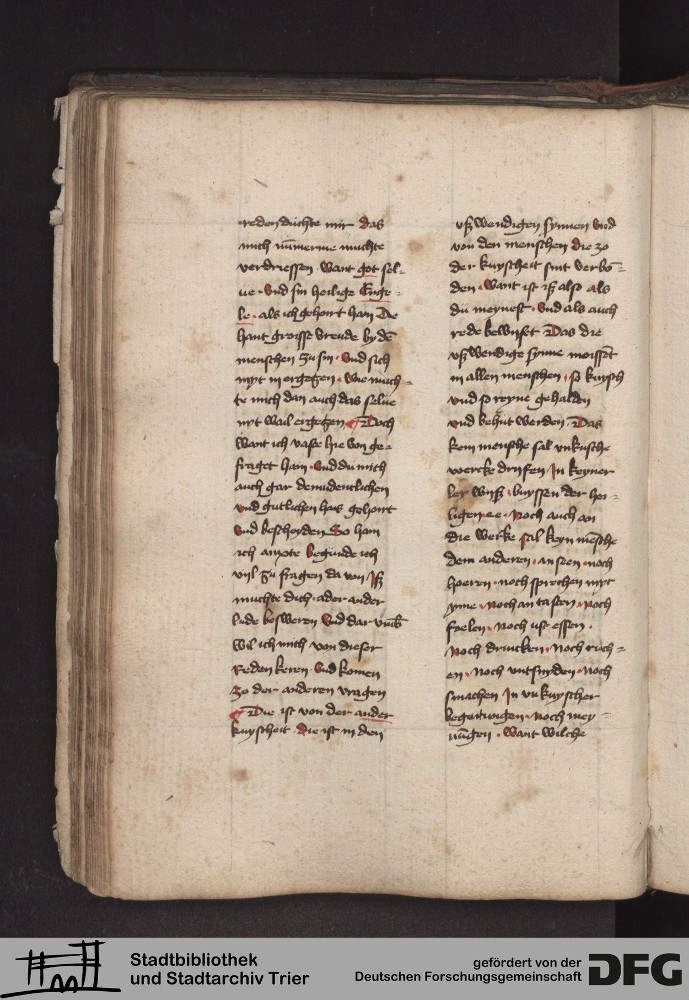 reden duchte mir das
mich nummerme muchte
verdriessen · want got sel-
ue · vnd sin heilige Enge-
le · als ich gehort han Die
hant groisse vreude by den
menschen zu sin · vnd sich
myt in ergegen · wie much-
te mich dan auch das selue
nyt wail ergetzen Doch
want ich vaste hie von ge-
fraget han · vnd du mich
auch gar demudentlichen
vnd gutlichen hais gehoirt
vnd bescheyden So han
ich anxte begunde ich
vyl zu fragen da von Iß
muchte dich · ader ander
lude besweren vnd dar vmb
wil ich mich von dieser
Reden keren · vnd komen
zo der anderen vragen
Die ist von der ander
kuyscheit · die ist in den
vßwendigen synnen vnd
von den menschen die zo
der kuyscheit sint verbon-
den · want ist iß also als
du meynest · vnd als auch
rede bewiset Das die
vßwendige synne moissent
in allen menschen · so kuysch
vnd so reyne gehalden
vnd behut werden · Das
kein mensche sal vnkusche
wercke driffen In keyner
ley wiß · buyssen der hei-
ligen ee · noch auch an
die werke sal keyn mensche
dem anderen · an seen · noch
hoeren · noch sprechen myt
yme · noch an tasten · noch
foelen · noch uff essen ·
noch drincken · noch ruch-
en · noch untfinden · noch
smachen In vnkuyscher
begerungen · noch mey-
nungen · want wilche
Stadtbibliothek
und Stadtarchiv Trier
gefördert von der
Deutschen Forschungsgemeinschaft
DFG